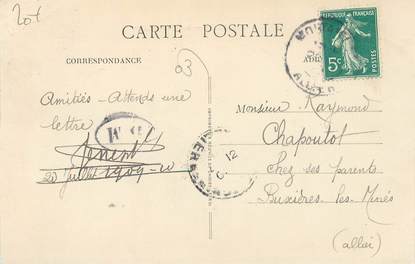 20f
CARTE POSTALE
CORRESPONDANCE
03
RÉPUBLIQUE FRANÇAISE
5c
POSTES
ALLIER
Amitiés - Attends une
lettre
20 juillet 1909
Monsieur Raymond
Chapoutot
Chez ses parents
Buxières les Mines
(allier)